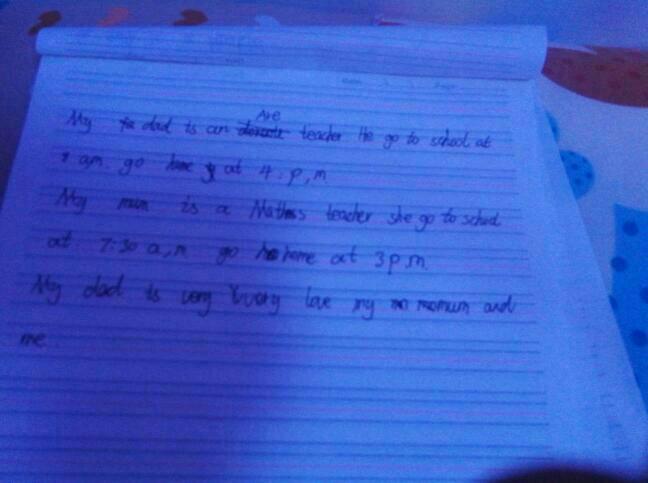 Are
My dad is an teacher He go to school at
am. go home at 4. p, m
My mum is a Mathss teacher she go to school
at 7:30 a, m go home at 3 p m.
My dad is very very love my momum and
me.